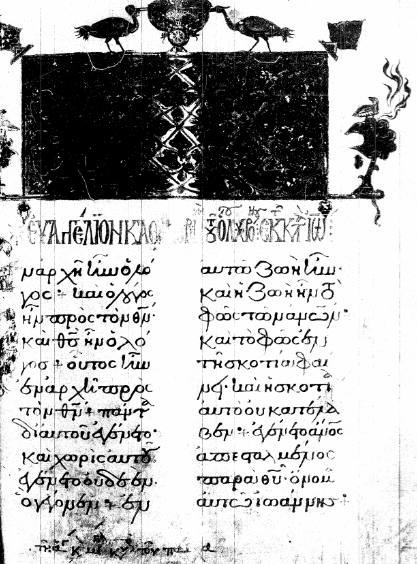 ἐν ἀρχῆ ἦν ὁ λό
γος· καὶ ὁ λόγος
ἦν πρὸς τὸν θν·
καὶ θς ἦν ὁ λό
γος· οὗτος ἦν
ἐν ἀρχῆ πρὸς
τὸν θν· πάντα
δι αὐτοῦ ἐγένετο·
καὶ χωρὶς αὐτοῦ
ἐγένετο οὐδὲ ἕν·
ὃ γέγονεν· ἐν
αὐτῶ ζωὴ ἦν·
καὶ ἡ ζωὴ ἦν τὸ
φῶς τῶν ἀνων·
καὶ τὸ φῶς ἐν
τῆ σκοτία φαί
νει· καὶ ἡ σκοτία
αὐτὸ οὐ κατέλα
βεν· ἐγένετο ἄνος
ἀπεσταλμένος
παρὰ θυ· ὄνομα
αὐτῶ ἰωάννης·